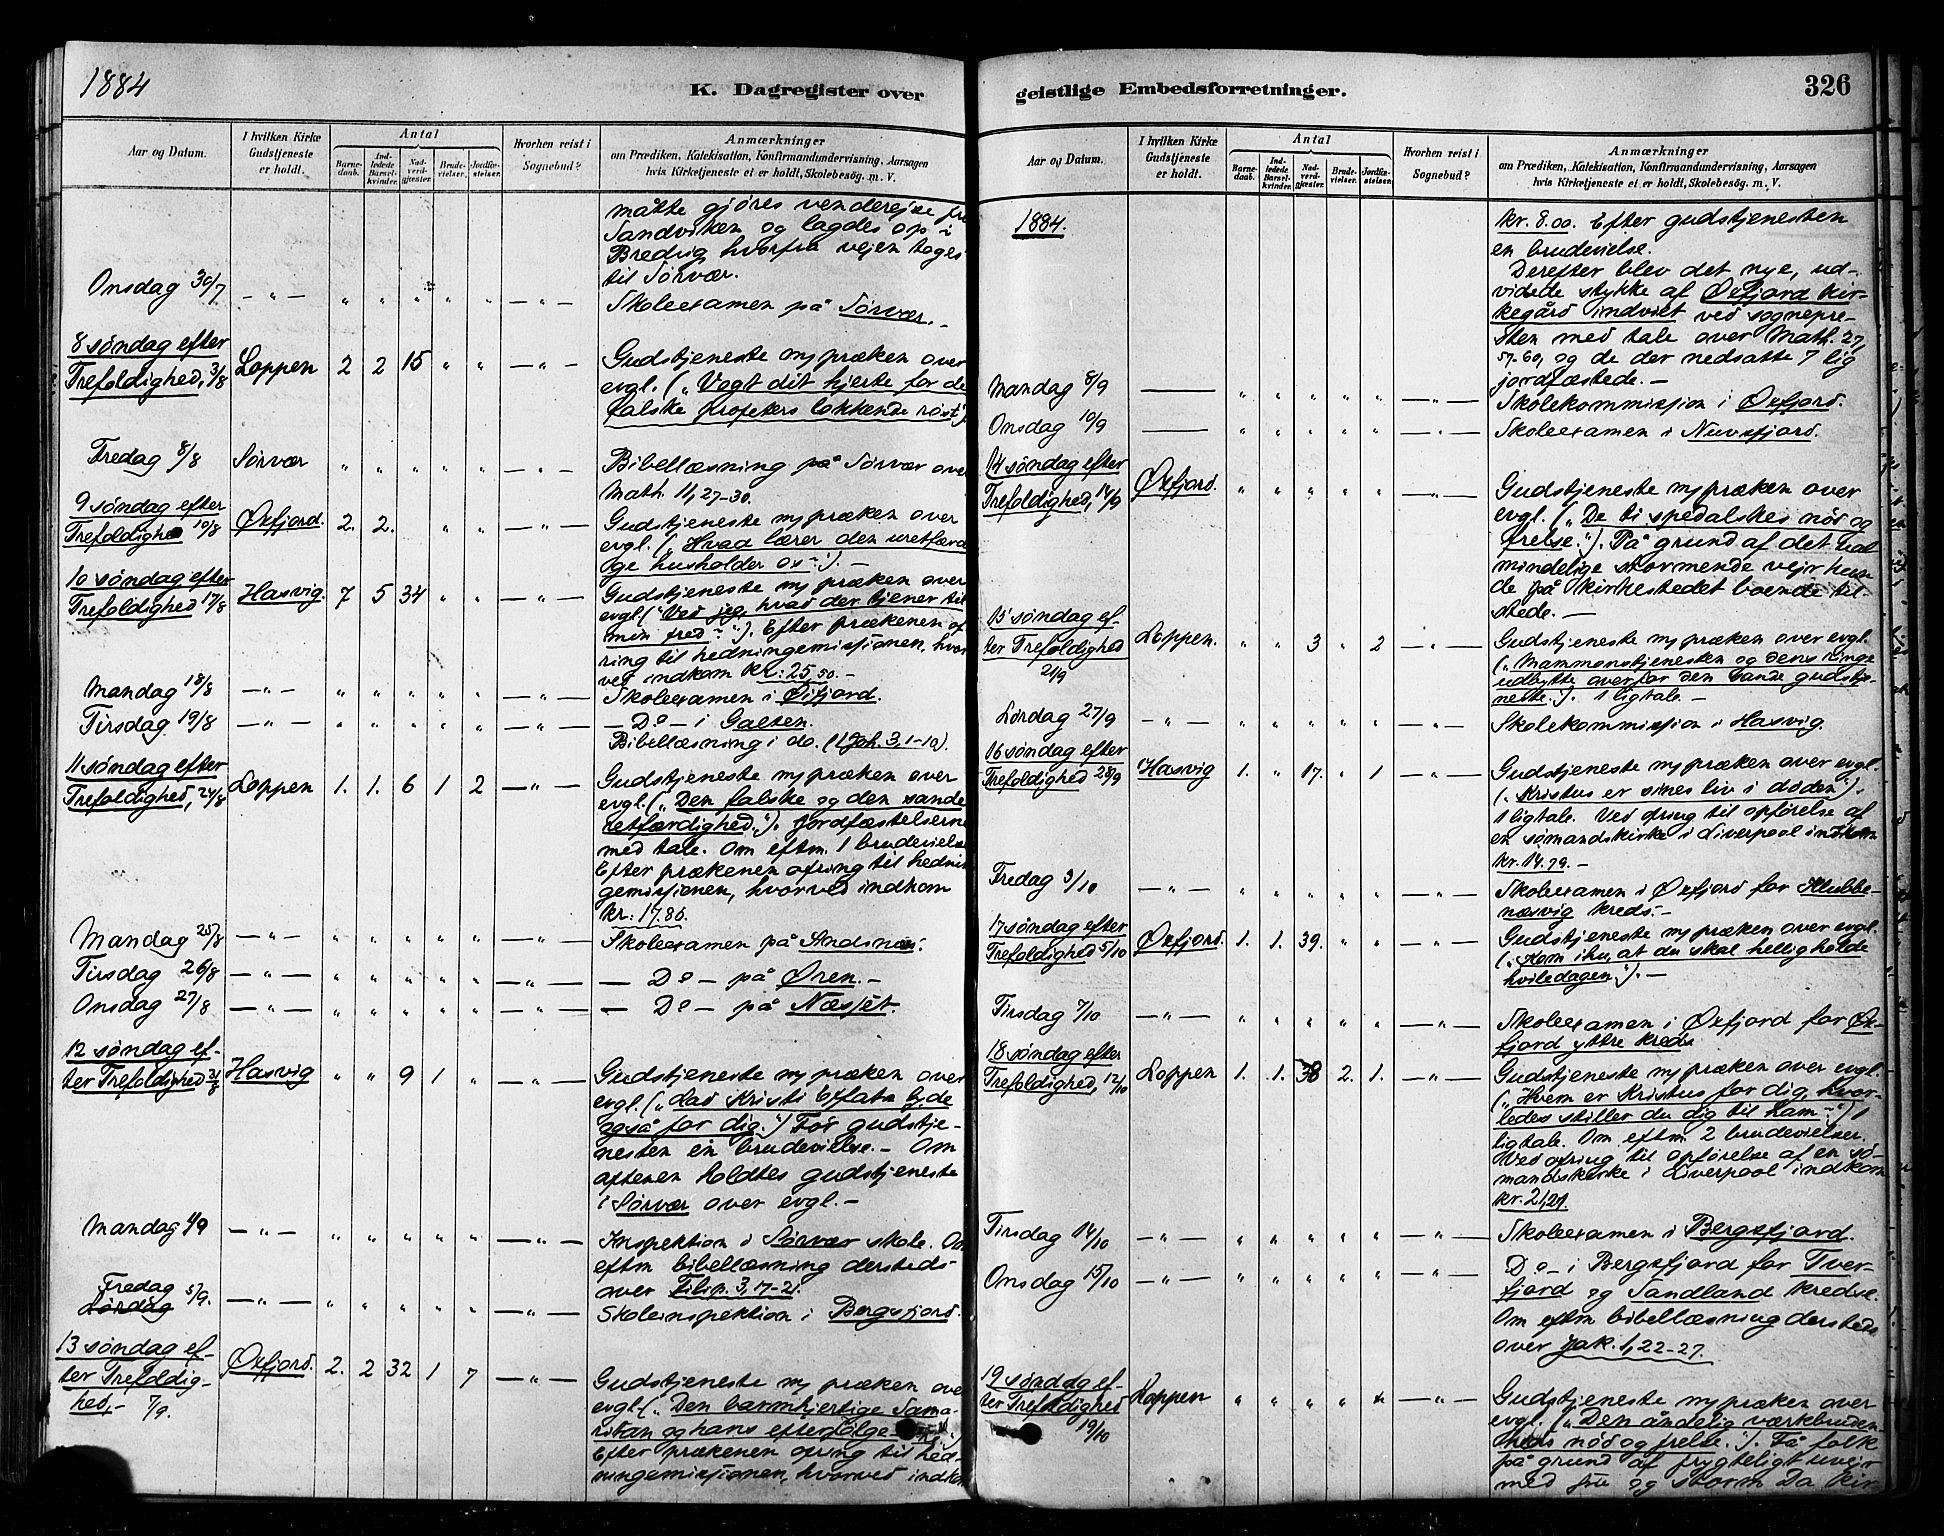 1884
K. Dagregister over
Aar og Datum.
I hvilken Kirke Gudstjeneste er holdt.
Antal
Barnedaab.
Indledede Barselkvinder.
Nadverdgjester.
Brudevielser.
Jordfæstelser.
Hvorhen reist i Sognebud?
Anmærkninger
om Prædiken, Katekisation, Konfirmandundervisning, Aarsagen
hvis Kirketjeneste ei er holdt, Skolebesøg. m. V.
måtte gjøres venderejse
Sandvikæn og lagdes op i
Bredvig hvorfra vejen toges
til Sørvær.
Onsdag 30/7 - " - " " " " " - " -
Skoleexamen på Sørvær. -
8 søndag efter
Trefoldighed, 3/8 Loppen 2 2 15 " " - " -
Gudstjeneste m/ præken over
evgl. („Vogt dit hjerte for de
falske profeters lokkende røst")
Fredag 8/8 Sørvær " " " " " - " -
Bibellæsning på Sørvær over
Math. 11, 27-30.
9 søndag efter
Trefoldighed 10/8 Øxfjord. 2. 2. " " - " -
Gudstjeneste m/ præken over
evgl. („Hvad lærer den uretfærd
ige husholder os -"). -
10 søndag efter
Trefoldighed 17/8 Hasvig. 7 5 34 " " - " -
Gudstjeneste m/ præken over
evgl. („Ved jeg, hvad der tjener til
min fred -"). Efter prækenen of
ring til hedningemissionen, hvor
ved indkom kr: 25,50. -
Mandag 18/8 - " - " " " " " - " -
Skoleexamen i Øifjord.
Tirsdag 19/8 - " - " " " " " - " -
- Do - i Galten.
Bibellæsning i do. (1 Joh. 3, 1-10).
11 søndag efter
Trefoldighed, 24/8 Loppen 1. 1. 6 1 2 - " -
Gudstjeneste m/ præken over
evgl. („Den falske og den sande
retfærdighed."). Jordfæstelserne
med tale. Om eftm. 1 brudevielse
Efter prækenen ofring til hednin
gemissionen, hvorved indkom
kr: 17.86.
Mandag 25/8 - " - " " " " " - " -
Skoleexamen på Andsnæs.
Tirsdag 26/8 - " - " " " " " - " -
- Do - på Øren. -
Onsdag 27/8 - " - " " " " " - " -
- Do - på Næsset.
12 søndag ef-
ter Trefoldighed 31/8 Hasvig " " 9 1 " - " -
Gudstjeneste m/ præken over
evgl. („Lad Kristi Effata lyde
også for dig.") Før gudstje-
nesten én brudevielse. - Om
aftenen holdtes gudstjeneste
i Sørvær over evgl. -
Mandag 1/9 - " - " " " " " - " -
Inspektion i Sørvær skole. Om
eftm bibellæsning dersteds
over Filip. 3, 17-21.
Fredag
Lørdag 5/9. - " - " " " " " - " -
Skoleinspektion i Bergsfjord.
13 søndag ef-
ter Trefoldig-
hed, - 7/9. Øxfjord. 2. 2 32 1 7 - " -
Gudstjeneste m/ præken over
evgl. („Den barmhjertige Sama-
ritan og hans efterfølge
Efter prækenen ofring til hed-
ningemissionen, hvorved indkom
geistlige Embedsforretninger.
326
Aar og Datum.
I hvilken Kirke Gudstjeneste er holdt.
Antal
Barnedaab.
Indledede Barselkvinder.
Nadverdgjester.
Brudevielser.
Jordfæstelser.
Hvorhen reist i Sognebud?
Anmærkninger
om Prædiken, Katekisation, Konfirmandundervisning, Aarsagen
hvis Kirketjeneste ei er holdt, Skolebesøg. m. V.
1884.
kr. 8.00. Efter gudstjenesten
en brudevielse.
Derefter blev det nye, ud-
videde stykke af Øxfjord kir-
kegård indviet ved sognepre-
sten med tale over Math. 27,
57-60, og de der nedsatte 7 lig
jordfæstede. -
Mandag 8/9 — " " " " " - " -
Skolekommission i Øxfjord.
Onsdag 10/9 — " " " " " - " -
Skoleexamen i Nuvsfjord.
14 søndag efter
Trefoldighed, 14/9 Øxfjord. " " " " " - " -
Gudstjeneste m/ præken over
evgl. („De ti spedalskes nød og
frelse."). På grund af det ual
mindelige stormende vejr kun
de på kirkestedet boende til-
stede. -
15 søndag ef-
ter Trefoldighed
21/9 Loppen. " " 3 " 2 - " -
Gudstjeneste m/ præken over evgl.
(„Mammonstjenesten og dens ringe
udbytte overfor den sande gudstje-
neste."). 1 ligtale.
Lørdag 27/9 - " - " " " " " - " -
Skolekommission i Hasvig.
16 søndag efter
Trefoldighed 28/9 Hasvig 1. " 17. " 1 - " -
Gudstjeneste m/ præken over evgl.
(„Kristus er sines liv i døden").
1 ligtale. Ved ofring til opførelse af
en sømandskirke i Liverpool indkom
kr. 14.79. -
Fredag 3/10 - " - " " " " " - " -
Skoleexamen i Øxfjord for Klubbe-
næsvig kreds. -
17 søndag efter
Trefoldighed 5/10 Øxfjord. 1. 1. 39. " " - " -
Gudstjeneste m/ præken over evgl.
(„Kom ihu, at du skal helligholde
hviledagen"). -
Tirsdag 7/10 - " - " " " " " - " -
Skoleexamen i Øxfjord for Øx-
fjord yttre kreds
18 søndag efter
Trefoldighed, 12/10 Loppen 1. 1. 38 2. 1. - " -
Gudstjeneste m/ præken over evgl.
(„Hvem er Kristus for dig, hvor-
ledes stiller du dig til ham -") 1
ligtale. Om eftm. 2 brudevielser.
Ved ofring til opførelse af en sø-
mandskirke i Liverpool indkom
kr. 21,21.
Tirsdag 14/10 - " - " " " " " - " -
Skoleexamen i Bergsfjord.
Onsdag 15/10 - " - " " " " " - " -
Do - i Bergsfjord for Tver-
fjord og Sandland kredse.
Om eftm bibellæsning dersteds
over Jak. 1, 22-27.
19 søndag ef-
ter Trefoldighed
19/10 Loppen " " " " " - " -
Gudstjeneste m/ præken over
evgl. („Den åndelig værkbruden
heds nød og frelse."). Få folk
på grund af frygteligt uvejr
med sne og storm Da kir